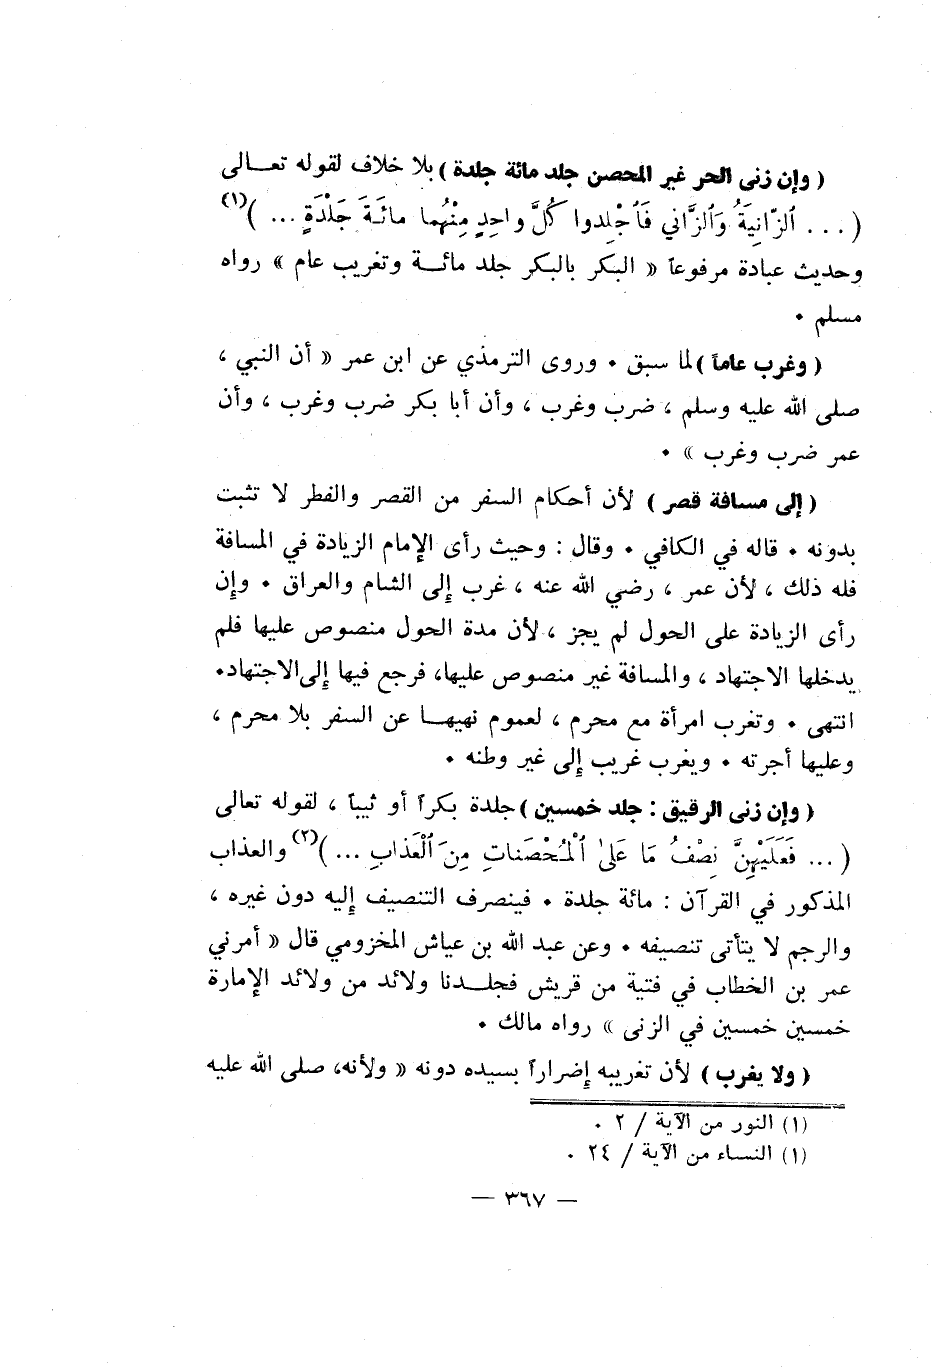 ( وإن زنى الحر غير المحصن جلد مائة جلدة ) بلا خلاف لقوله تعـــالى
( . . . ٱلزّانِيَةُ وَٱلزَّاني فَٱجْلِدوا كُلَّ واحِدٍ مِنْهُما مائَةَ جَلْدَةٍ ... )(١)
وحديث عبادة مرفوعاً « البكر بالبكر جلد مائـــة وتغريب عام » رواه
مسلم ٠
( وغرب عاماً ) لما سبق ٠ وروى الترمذي عن ابن عمر « أن النبي ،
صلى الله عليه وسلم ، ضرب وغرب ، وأن أبا بكر ضرب وغرب ، وأن
عمر ضرب وغرب » ٠
( إلى مسافة قصر ) لأن أحكام السفر من القصر والفطر لا تثبت
بدونه ٠ قاله في الكافي ٠ وقال : وحيث رأى الإمام الزيادة في المسافة
فله ذلك ، لأن عمر ، رضي الله عنه ، غرب إلى الشام والعراق ٠ وإن
رأى الزيادة على الحول لم يجز ، لأن مدة الحول منصوص عليها فلم
يدخلها الاجتهاد ، والمسافة غير منصوص عليها، فرجع فيها إلى الاجتهاد٠
انتهى ٠ وتغرب امرأة مع محرم ، لعموم نهيهــا عن السفر بلا محرم ،
وعليها أجرته ٠ ويغرب غريب إلى غير وطنه ٠
( وإن زنى الرقيق : جلد خمسين ) جلدة بكراً أو ثيباً ، لقوله تعالى
( ... فَعَلَيْهِنَّ نِصْفُ مَا عَلىٰ ٱلْمُحْصَناتِ مِنَ ٱلْعَذابِ ... )(٢) والعذاب
المذكور في القرآن : مائة جلدة ٠ فينصرف التنصيف إليه دون غيره ،
والرجم لا يتأتى تنصيفه ٠ وعن عبد الله بن عياش المخزومي قال « أمرني
عمر بن الخطاب في فتية من قريش فجلــدنا ولائد من ولائد الإمارة
خمسين خمسين في الزنى » رواه مالك ٠
( ولا يغرب ) لأن تغريبه إضراراً بسيده دونه « ولأنه، صلى الله عليه
(١) النور من الآية / ٢ ٠
(١) النساء من الآية / ٢٤ ٠
— ٣٦٧ —